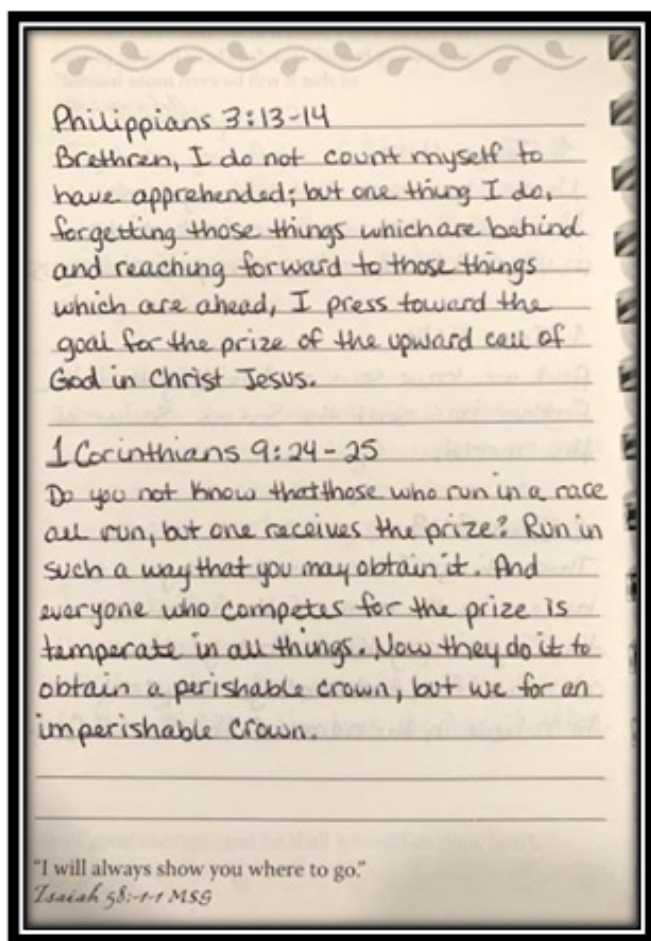 Philippians 3:13-14
Brethren, I do not count myself to
have apprehended; but one thing I do,
forgetting those things which are behind
and reaching forward to those things
which are ahead, I press toward the
goal for the prize of the upward call of
God in Christ Jesus.
1 Corinthians 9:24-25
Do you not know that those who run in a race
all run, but one receives the prize? Run in
such a way that you may obtain it. And
everyone who competes for the prize is
temperate in all things. Now they do it to
obtain a perishable crown, but we for an
imperishable crown.
"I will always show you where to go."
Isaiah 58:11 MSG